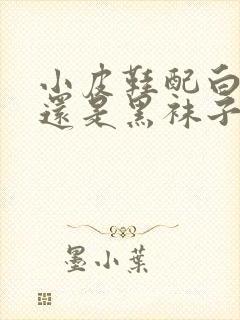 小皮鞋配白
還是黑袜子
墨小葉